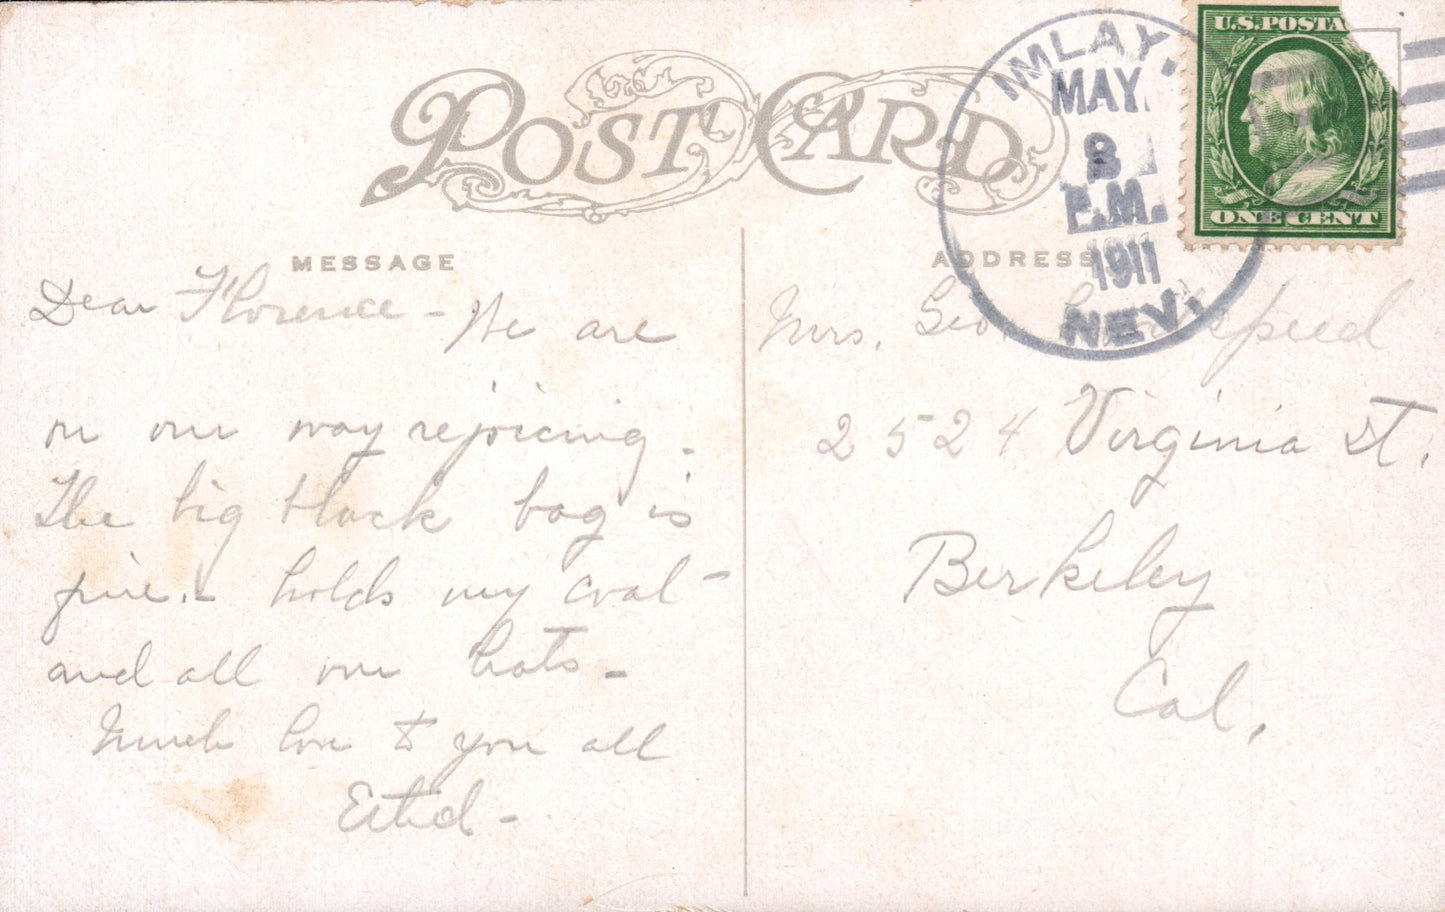 POST CARD
IMLAY,
MAY
8
P.M.
1911
NEV.
U.S. POSTA
ONE CENT
MESSAGE
ADDRESS
Dear Florence - We are
on our way rejoicing.
The big black bag is
fine. - holds my coat -
and all our hats -
Much love to you all
Mrs. Geo.
2524 Virginia St.
Berkeley
Cal.